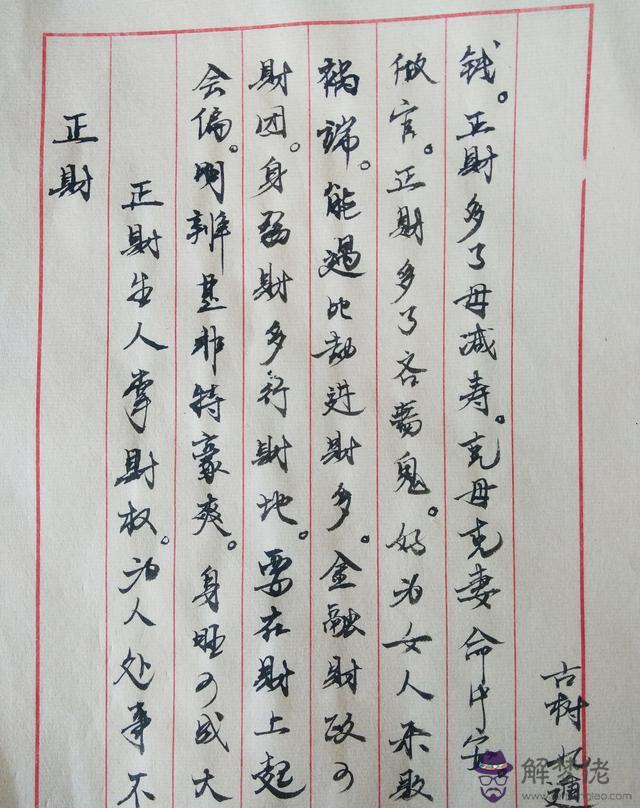 正財
正財生人掌財权。为人处事不
会偏。明辨是非特豪爽。身旺可成大
財团。身弱財多行財地。要在財上起
祸端。能遇比劫进財多。金融財政可
做官。正財多了吝啬鬼。好为女人
钱。正財多了母减寿。克母克妻命中定
古树
解梦佬